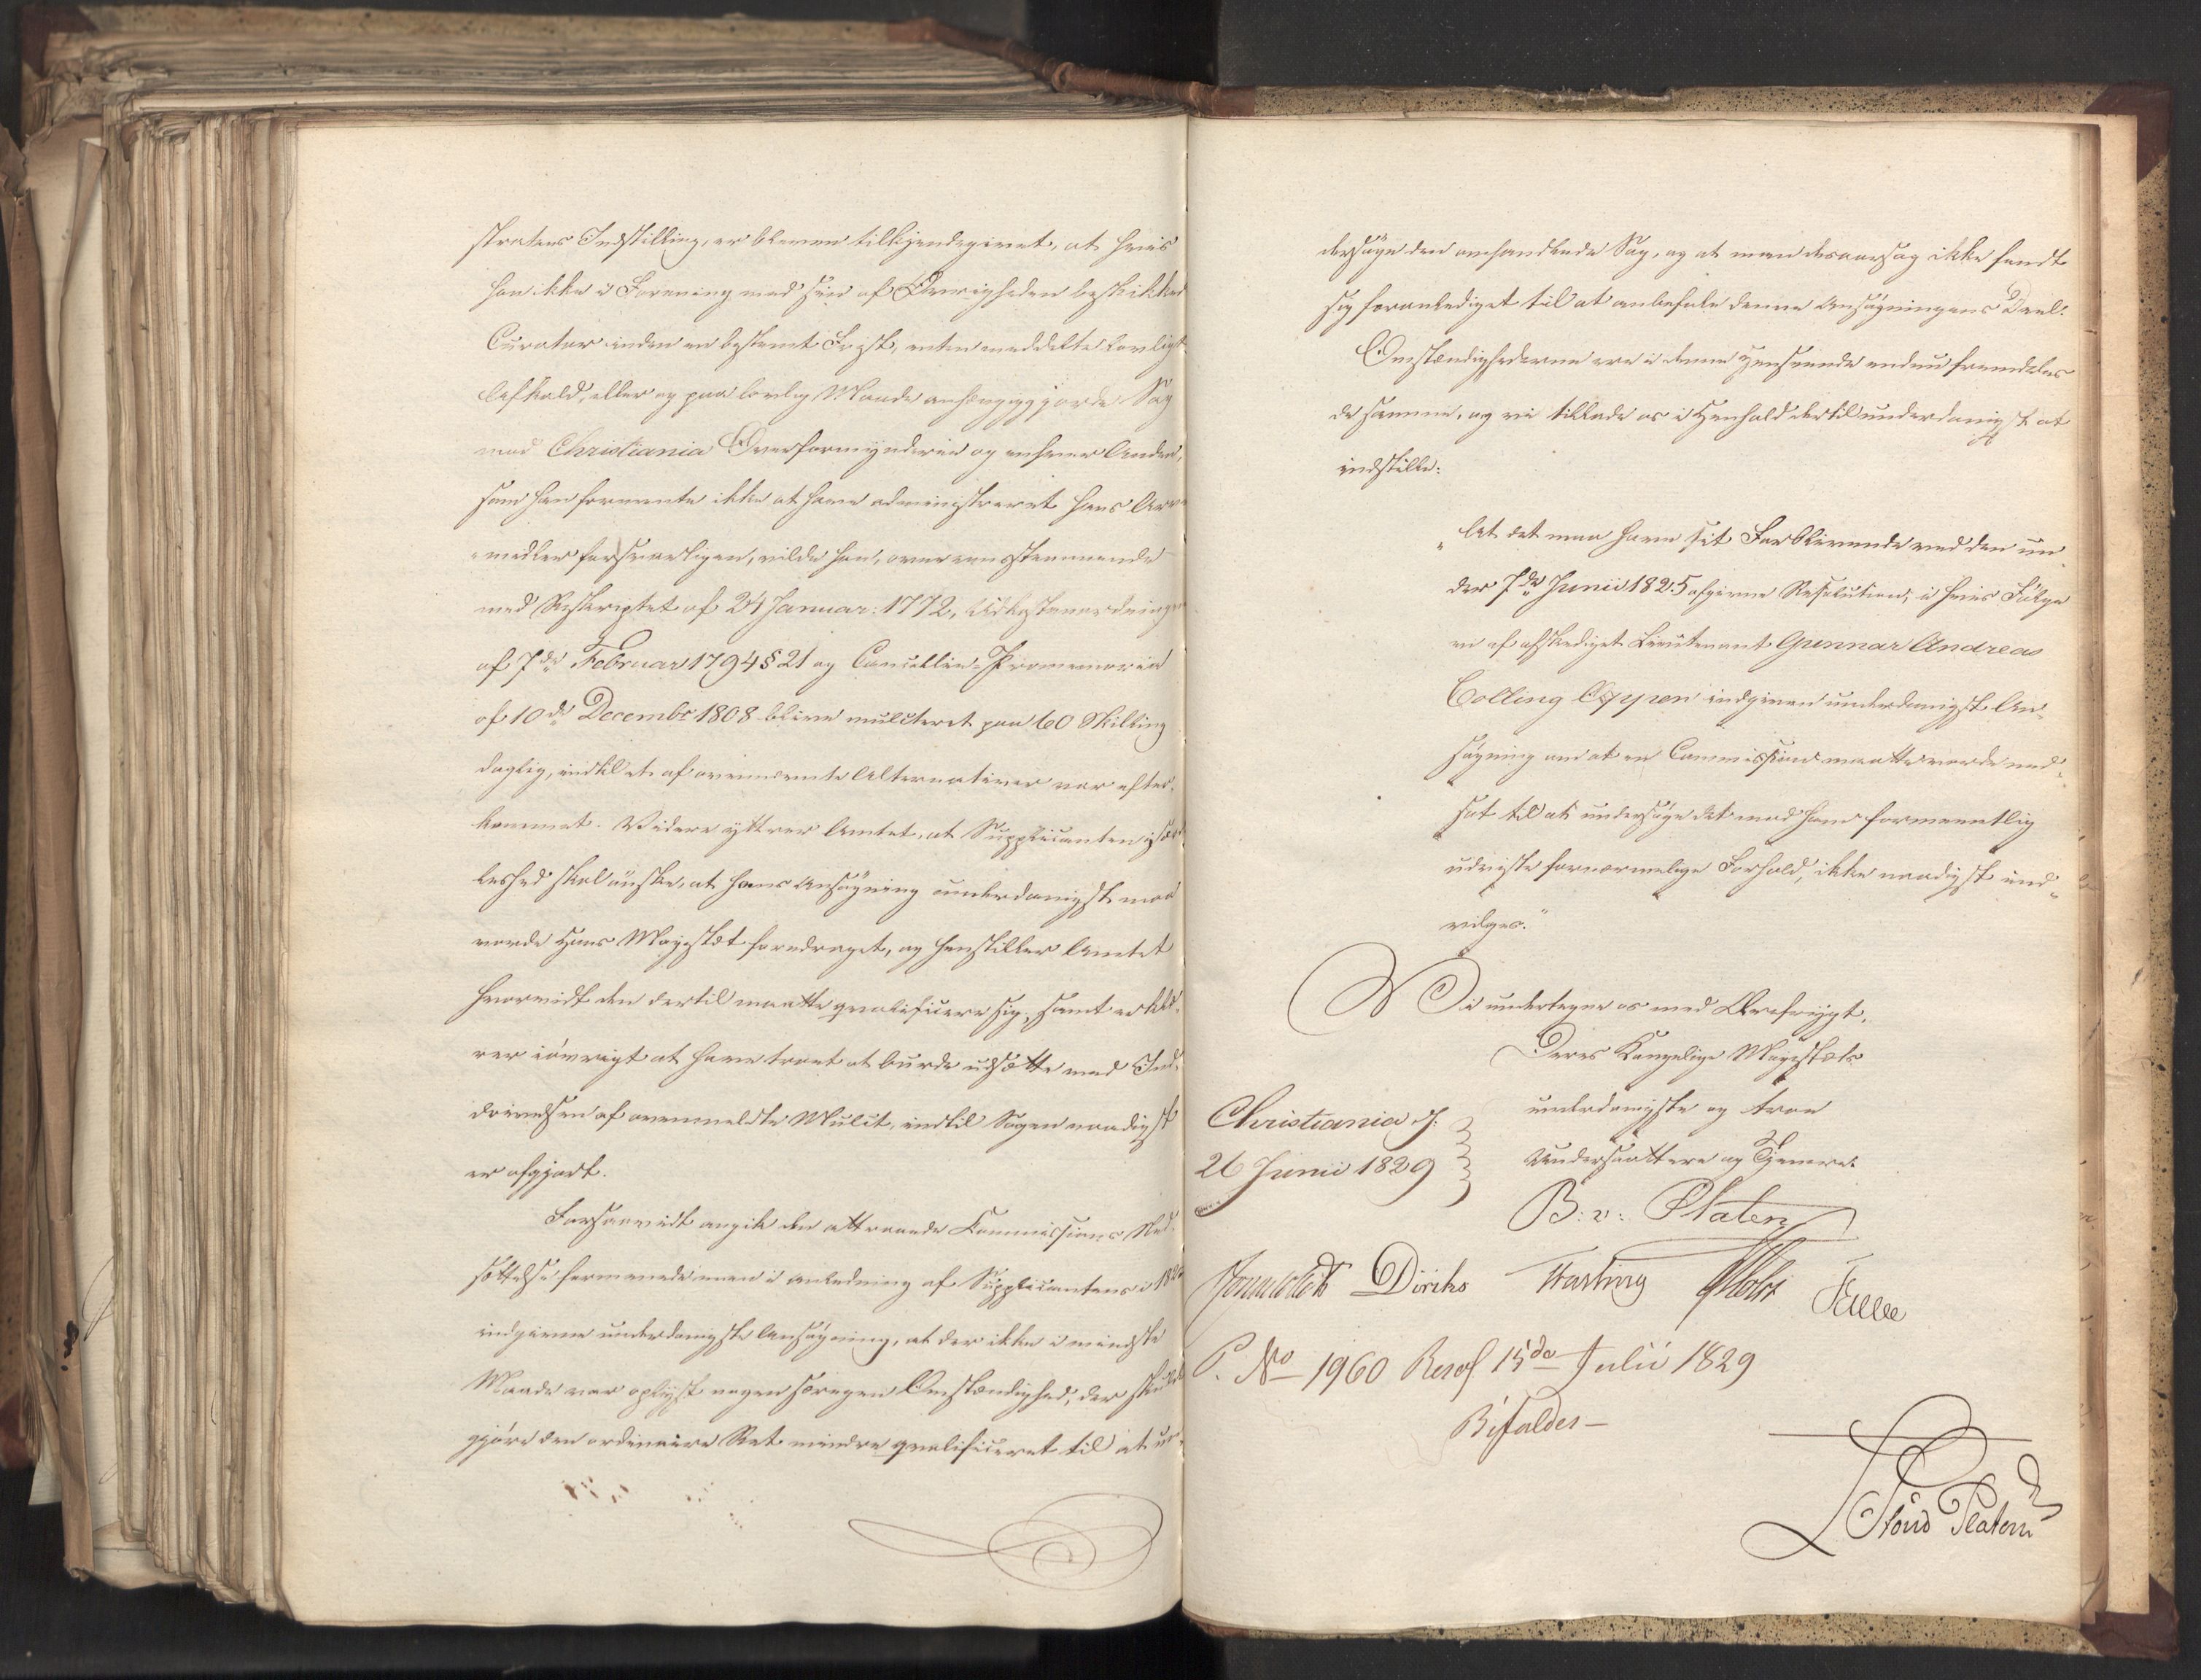 stratens Indstilling, er bleven tilkjendegivet, at hvis
han ikke i Forening med sin af Øvrigheden beskikked
Curator inden en bestemt Frist, enten meddelte lovligt
Afkald, eller og paa lovlig Maade anhængiggjorde Sag
mod Christiania Overformynderie og enhver Anden,
som han formeente ikke at have administreret hans Arve
=midler forsvarligen, vilde han, overeensstemmende
med Rescriptet af 24 Januar: 1772, Udkastanordningen
af 7de Februar 1794 § 21 og Cancellie-Promemoria
af 10de Decembr 1808 blive mulcteret paa 60 Skilling
daglig, indtil et af ovennævnte Alternativer var efter-
kommet. Videre yttrer Amtet, at Supplicanten
skal ønske, at hans Ansøgning underdanigst maa
vorde Hans Majestæt foredraget, og henstiller Amtet
hvorvidt den dertil maatte qvalificere sig, samt erklæ-
rer iøvrigt at have troet at burde udsætte med Ind-
drivelsen af ovenmeldte Mulct, indtil Sagen naadigst
er afgjort.
Forsaavidt angik den attraaede Commissions Ned-
sættelse formeente man i Anledning af Supplicantens i
indgivne underdanigste Ansøgning, at der ikke i mindste
Maade var oplyst nogen særegen Omstændighed, der skulde
gjøre den ordinaire Ret mindre qvalificeret til at un-
dersøge den omhandlede Sag, og at man desaarsag ikke fandt
sig foranlediget til at anbefale denne Ansøgningens Deel.
Omstændighederne ere i denne Henseende endnu fremdeles
de samme, og vi tillade os i Henhold dertil underdanigst at
indstille:
"At det maa have sit Forblivende ved den un-
der 7de Junii 1825 afgivne Resolution, i hvis Følge
en af afskediget Lieutenant Gunnar Andreas
Colling Oppen indgiven underdanigst An-
søgning om at en Commission maatte vorde ned-
sat til at undersøge det mod ham formeentlig
udviste fornærmelige Forhold, ikke naadigst ind-
vilges."
Vi undertegne os med Ærefrygt,
Deres Kongelige Majestæts
underdanigste og troe
Undersaattere og Tjenere.
Christiania d:
26 Junii 1829
B: v: Platen
Diriks Fasting Holst
P. No 1960 Resol 15de Julii 1829
Bifaldes –
Platen